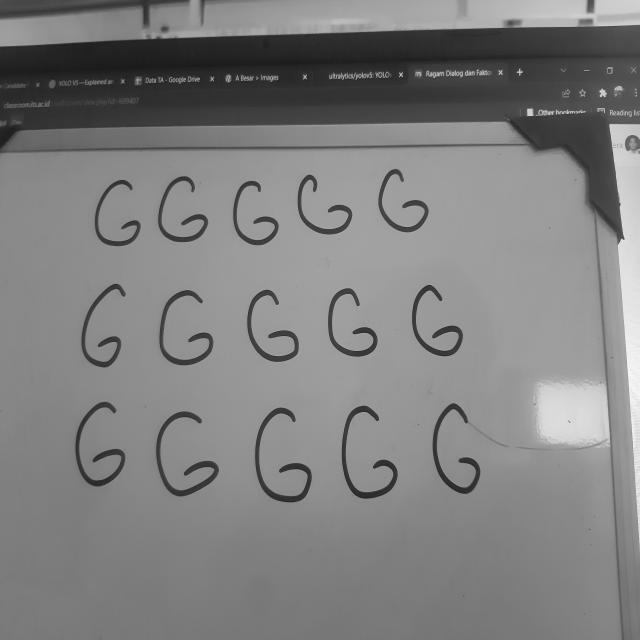 YOLO V5—Explained an
Data TA - Google Drive
A Besar > Images
ultralytics/yolov5: YOLO
Ragam Dialog dan Fakto
classroom.its.ac.id
Other bookmarks
Reading list
G G G G G
G G G G G
G G G G G